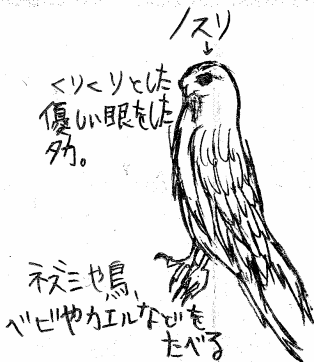 ノスリ
くりくりとした
優しい眼をした
タカ。
ネズミや鳥、
ヘビやカエルなどを
たべる